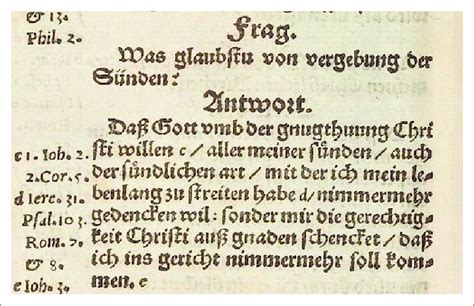 & 13.
Frag.
Phil. 2.
Was glaubstu von vergebung der
Sünden?
Antwort.
Daß Gott vmb der gnugthuung Chri
c 1. Ioh. 2. sti willen c / aller meiner sünden / auch
2. Cor. 5. der sündlichen art / mit der ich mein le-
d Iere. 31. benlang zu streiten habe d / nimmermehr
Psal. 103. gedencken wil: sonder mir die gerechtig-
Rom. 7. keit Christi auß gnaden schencket / daß
& 8. ich ins gericht nimmermehr soll kom-
e Ioh. 3. men. e